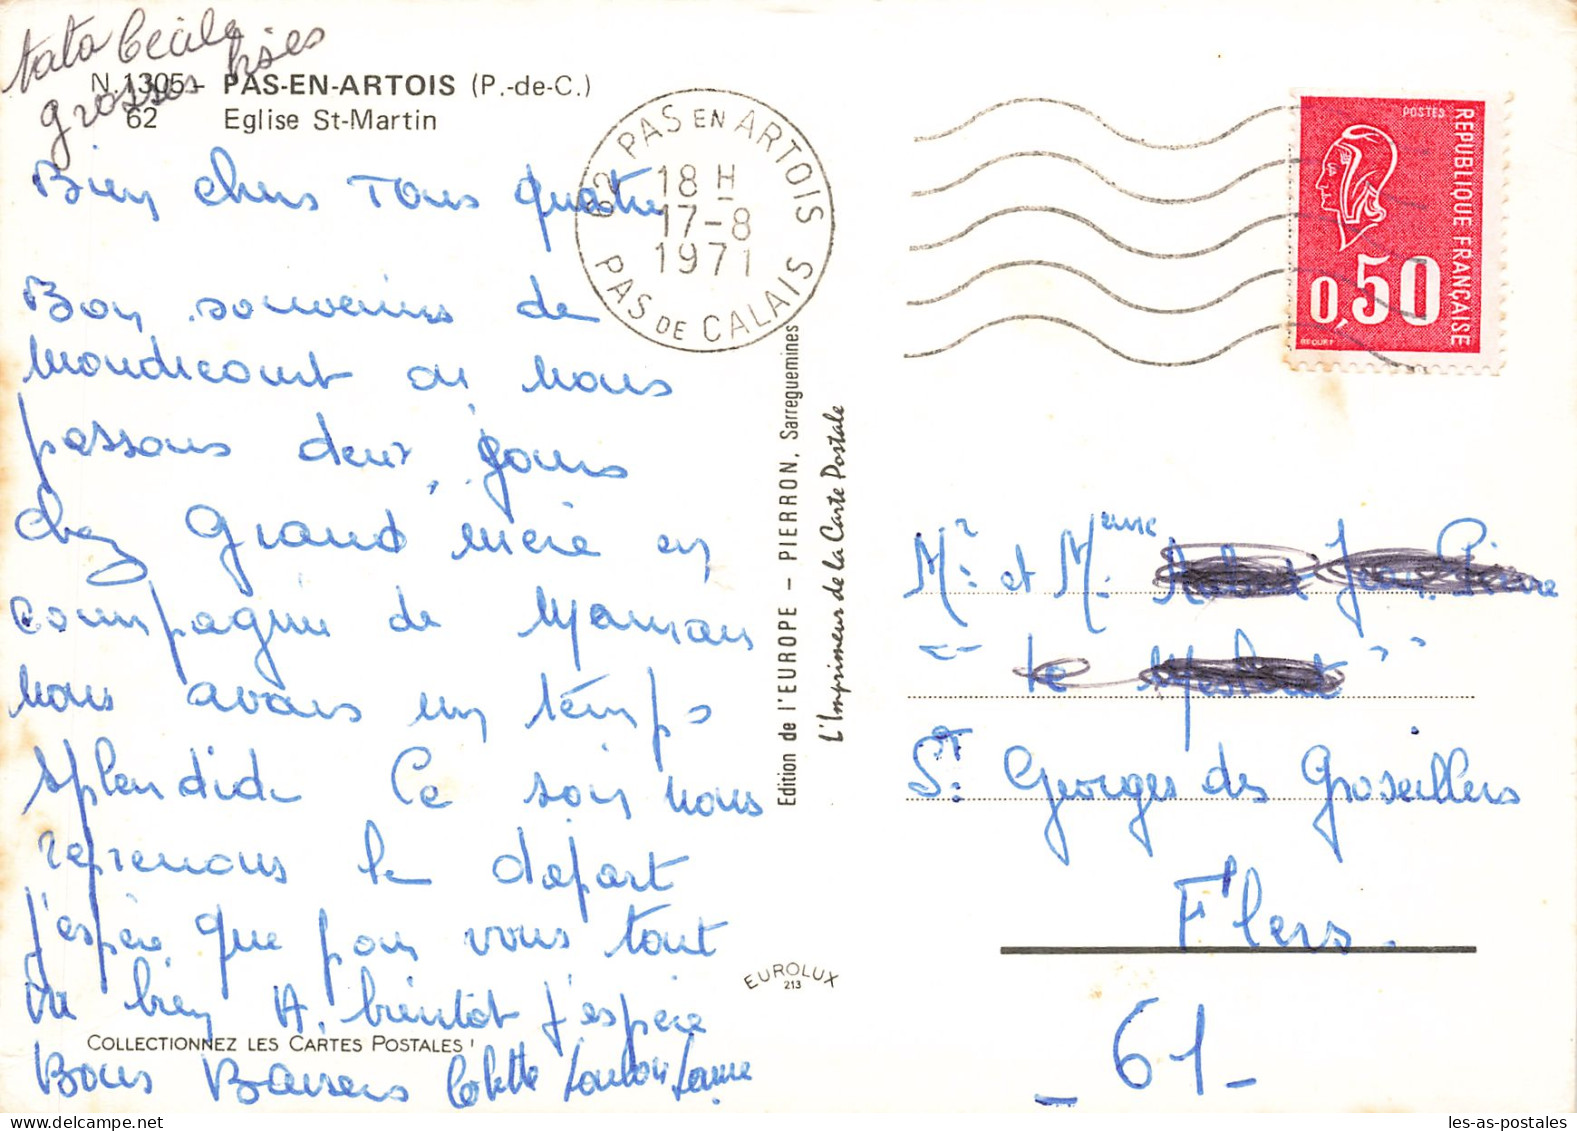 tata Cécile
grosses bises
N. 1305 - PAS-EN-ARTOIS (P.-de-C.)
62 Eglise St-Martin
Bien chers Tous quatre
Bon souvenirs de
Mondicourt ou nous
passons deux jours
chez Grand mère en
compagnie de Maman
nous avons un temps
splendide Ce soir nous
reprenons le depart
j'espère que pour vous tout
va bien A bientôt j'espère
COLLECTIONNEZ LES CARTES POSTALES !
Bons Baisers Colette
62 PAS EN ARTOIS
18 H
17-8
1971
PAS DE CALAIS
Edition de l'EUROPE - PIERRON, Sarreguemines
L'Imprimeur de la Carte Postale
EUROLUX
213
POSTES
REPUBLIQUE FRANÇAISE
0,50
BEQUET
Mr. et Mme Pierre
St. Georges des Groseillers
Flers.
- 61 -
les-as-postales